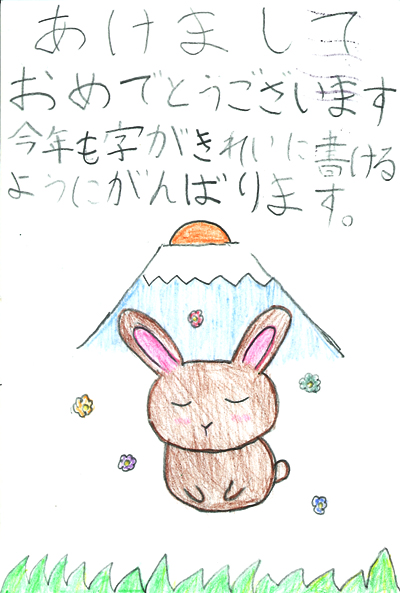 あけまして
おめでとうございます
今年も字がきれいに書ける
ようにがんばります。